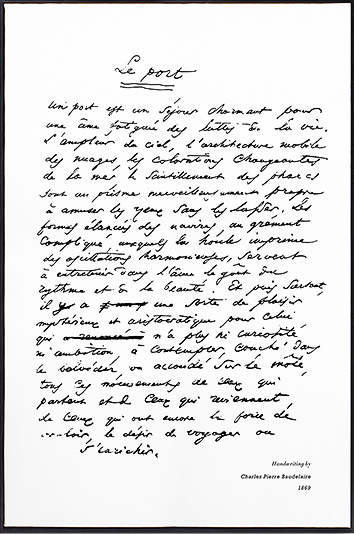 Le port
Un port est un séjour charmant pour
une âme fatiguée des luttes de la vie.
L'ampleur du ciel, l'architecture mobile
des nuages, les colorations changeantes
de la mer, le scintillement des phares
sont un prisme merveilleusement propre
à amuser les yeux sans les lasser. Les
formes élancées des navires, au gréement
compliqué, auxquels la houle imprime
des oscillations harmonieuses, servent
à entretenir dans l'âme le goût du
rythme et de la beauté. Et puis, surtout,
il y a une sorte de plaisir
mystérieux et aristocratique pour celui
qui n'a plus ni curiosité
ni ambition, à contempler, couché dans
le belvédère ou accoudé sur le môle
tous ces mouvements de ceux qui
partent et de ceux qui reviennent,
de ceux qui ont encore la force de
vouloir, le désir de voyager ou
s'enrichir.
Handwriting by
Charles Pierre Baudelaire
1869